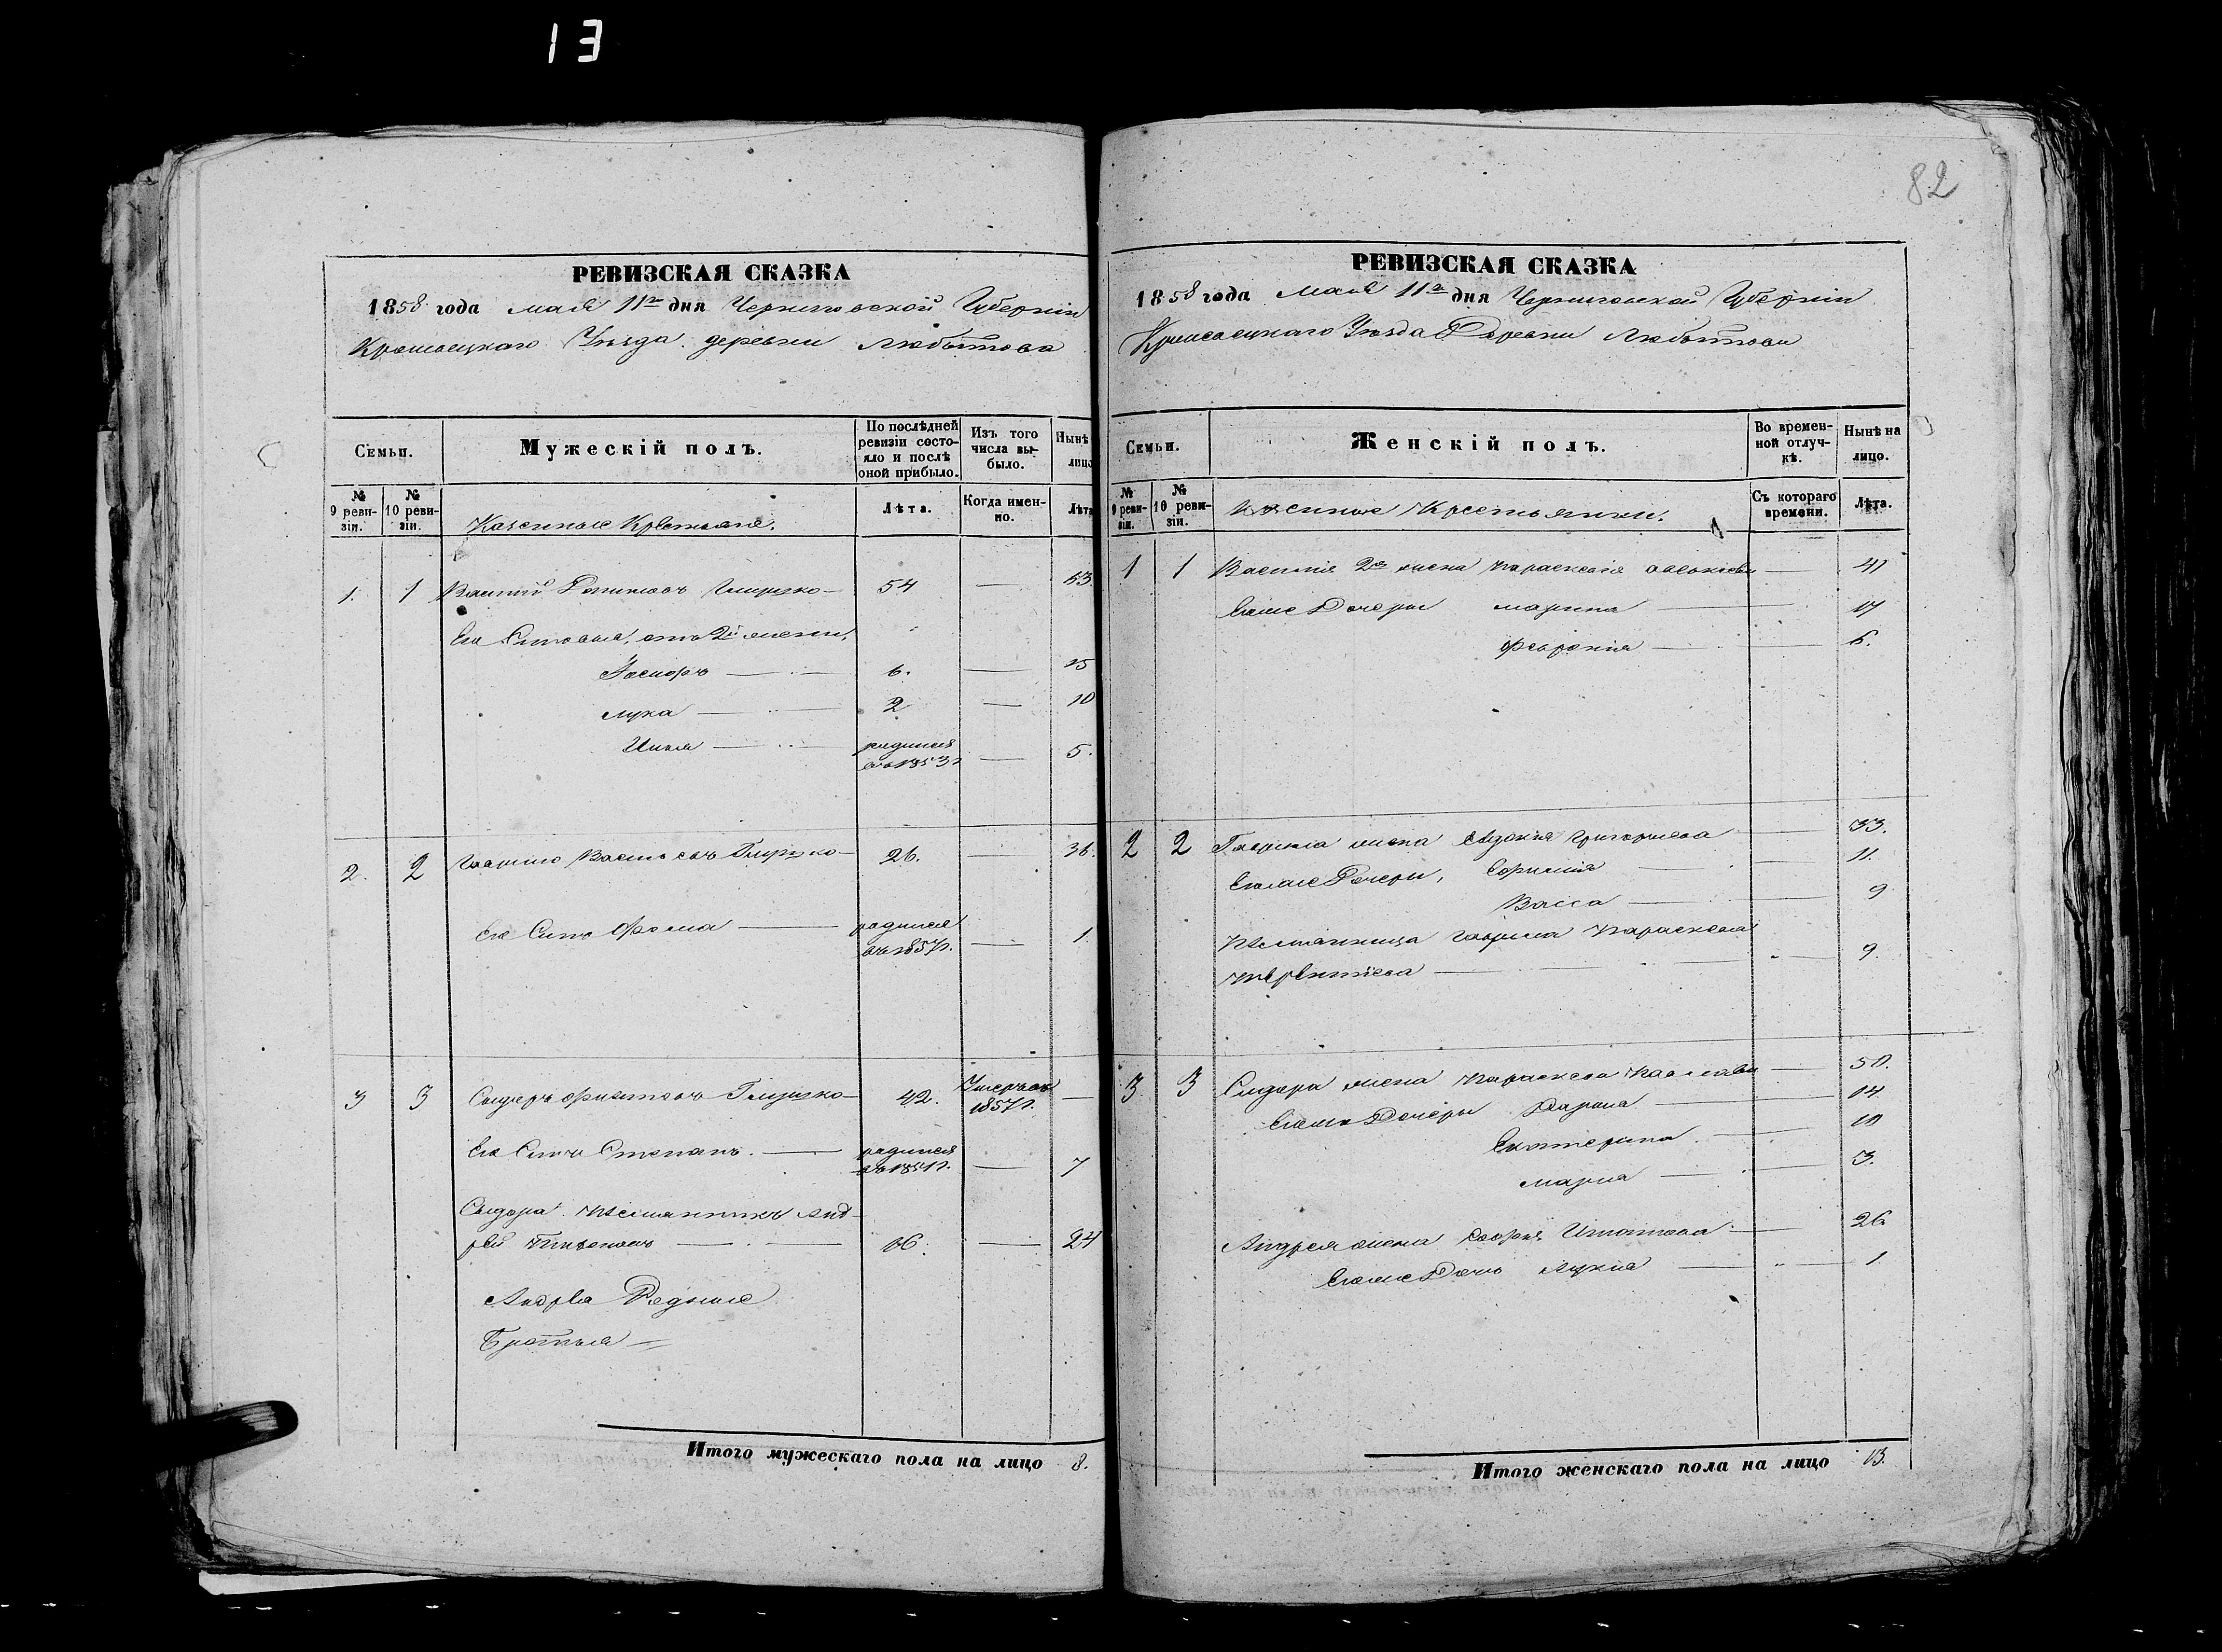 13
82
РЕВИЗСКАЯ СКАЗКА
1858 года мая 11го дня Черниговской Губерніи
Уѣзда деревни Любытова
Семьи.
Мужескій полъ.
По послѣдней ревизіи состояло и послѣ оной прибыло.
Изъ того числа выбыло.
Нынѣ лицо
№ 9 ревизіи.
№ 10 ревизіи.
Казенные Крестьяне.
Лѣта.
Когда именно.
Лѣта
1. 1 Василій 54 — 63.
Его Сыновья, отъ 2й жены,
6. — 15
Лука — 2 — 10
родился въ 1853г — 5.
2. 2 26. — 36.
Его Сынъ Фома — родился въ 1857г. — 1.
3 3 Сидоръ 42. Умеръ въ 1857г. —
Его Сынъ Степанъ. — родился въ 1851г. — 7
Сидора племянникъ Анд-
рей — 16. — 24
Андрея Родные
Братья —
Итого мужескаго пола на лицо 8.
РЕВИЗСКАЯ СКАЗКА
1858 года Мая 11го дня Черниговской Губерніи
Уѣзда Деревни Любытови
Семьи.
Женскій полъ.
Во временной отлучкѣ.
Нынѣ на лицо.
№ 9 ревизіи.
№ 10 ревизіи.
Казенные Крестьянки.
Съ котораго времени.
Лѣта.
1 1 Василія 2я жена Параскевія — 41
Ево же Дочери Марина — 17
Февронія — 6.
2 2 Гаврила жена Евдокія Григорьева — 33.
Ево же Дочери, — 11.
Васса — 9
Племянница Гаврила Параскева
— 9.
3 3 Сидора жена Параскева — 50.
Ево же Дочери Дарья — 14.
Екатерина — 10
Марья — 3.
Андрея жена Софья — 26
Ево же Дочь — 1
Итого женскаго пола на лицо 13.